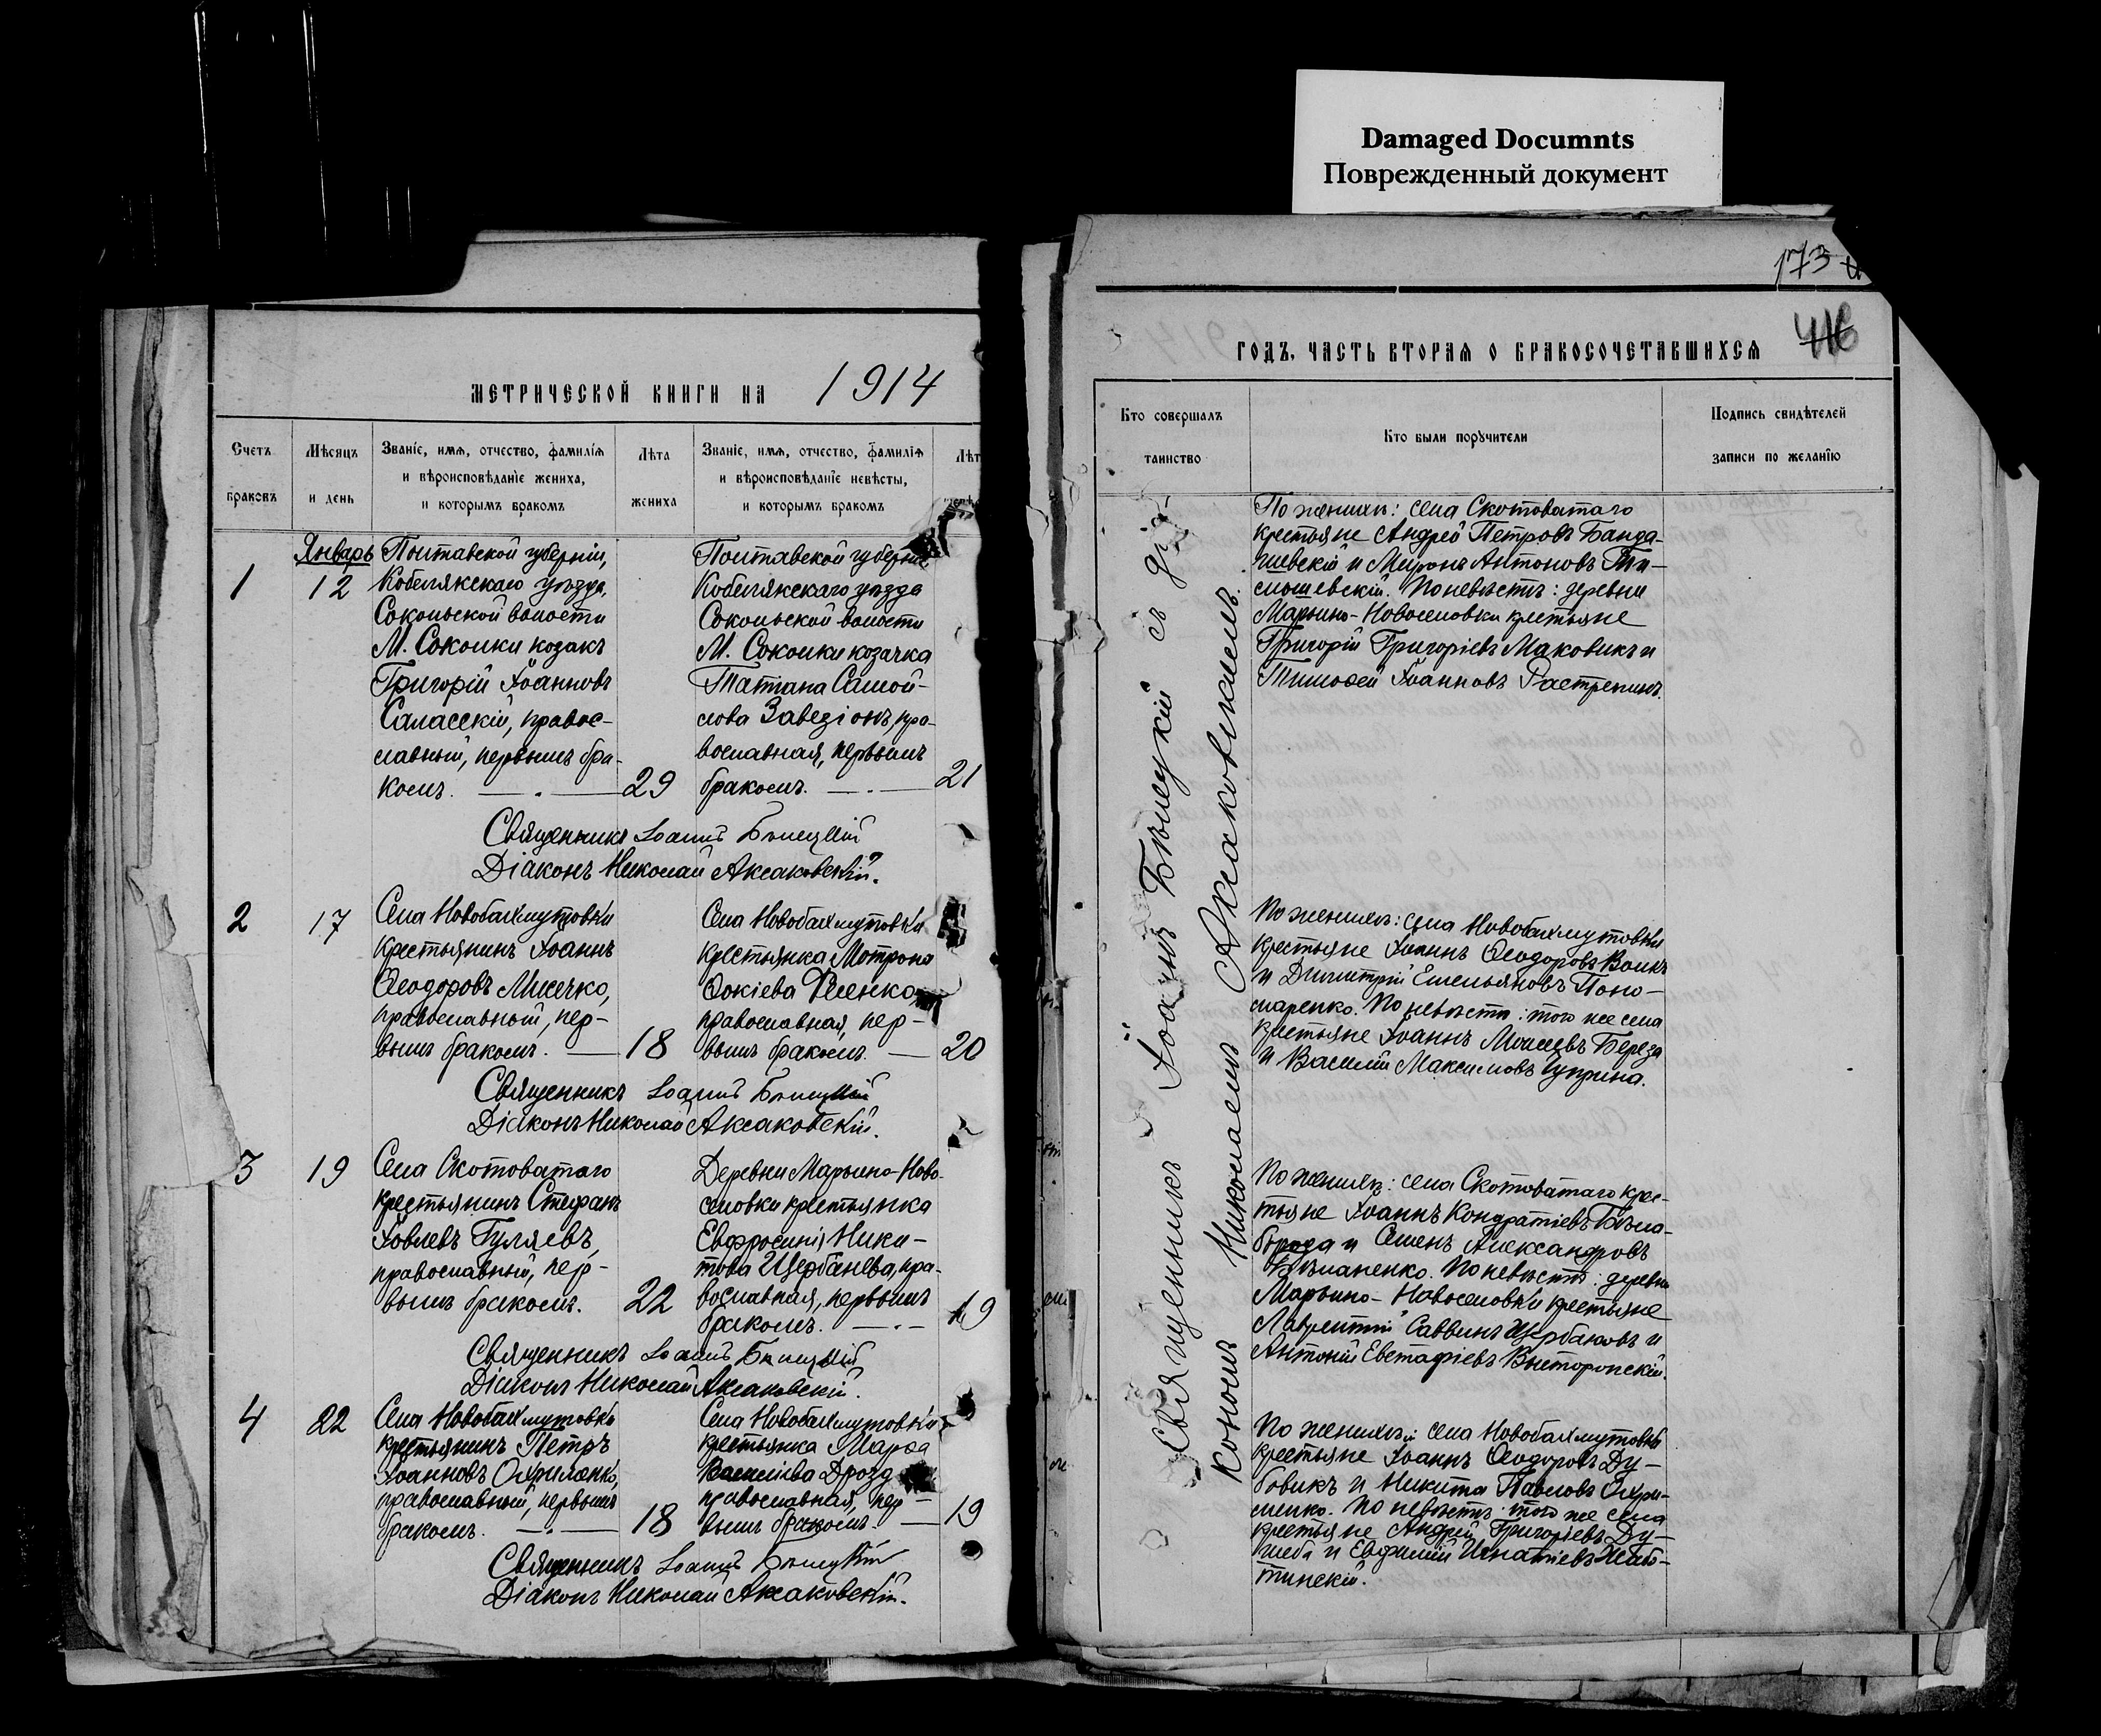 Damaged Documnts
Поврежденный документ
173
416
МЕТРИЧЕСКОЙ КНИГИ НА 1914
ГОДЪ, ЧАСТЬ ВТОРАЯ О БРАКОСОЧЕТАВШИХСЯ
Счетъ браковъ
Мѣсяцъ и день
Званіе, имя, отчество, фамилія
и вѣроисповѣданіе жениха,
и которымъ бракомъ
Лѣта жениха
Званіе, имя, отчество, фамилія
и вѣроисповѣданіе невѣсты,
и которымъ бракомъ
Лѣт
Кто совершалъ таинство
Кто были поручители
Подпись свидѣтелей
записи по желанію
Январь
1
12
Полтавской губерніи,
Кобелякскаго уѣзда,
Сокольской волости
М. Соколки козакъ
Григорій Іоанновъ
Саласскій, правос-
лавный, первымъ бра-
комъ.
29
Полтавской губерніи
Кобелякскаго уѣзда
Сокольской волости
М. Соколки козачка
Татіана Самой-
лова Заведіонъ, пра-
вославная, первымъ
бракомъ.
21
Священникъ Іоаннъ Бѣлецкій
Діаконъ Николай Аксаковскій.
2
17
Села Новобахмутовки
крестьянинъ Іоаннъ
Ѳеодоровъ Мисечко,
православный, пер-
вымъ бракомъ.
18
Села Новобахмутовки
крестьянка Мотрона
Ѳокіева
православная, пер-
вымъ бракомъ.
20
Священникъ Іоаннъ Бѣлецкій
Діаконъ Николай Аксаковскій.
3
19
Села Скотоватаго
крестьянинъ Стефанъ
Іовлевъ Гуляевъ,
православный, пер-
вымъ бракомъ.
22
Деревни Марьино-Ново-
селовки крестьянка
Евфросинія Ники-
това Щербанева, пра-
вославная, первымъ
бракомъ.
19
Священникъ Іоаннъ Бѣлецкій
Діаконъ Николай Аксаковскій.
4
22
Села Новобахмутовки
крестьянинъ Петръ
Іоанновъ Охрименко,
православный, первымъ
бракомъ.
18
Села Новобахмутовки
крестьянка Марѳа
Василіева Дрозд
православная, пер-
вымъ бракомъ.
19
Священникъ Іоаннъ Бѣлецкій
Діаконъ Николай Аксаковскій.
Священникъ Іоаннъ Бѣлецкій съ діа-
кономъ Николаемъ Аксаковскимъ.
По женихѣ: села Скотоватаго
крестьяне Андрей Петровъ Банда-
левскій и Миронъ Антоновъ Ти-
мошевскій. По невѣстѣ: деревни
Марьино-Новоселовки крестьяне
Григорій Григоріевъ Маковикъ и
Тимоѳей Іоанновъ Растрепинъ.
По женихѣ: села Новобахмутовки
крестьяне Іоаннъ Ѳеодоровъ Волкъ
и Димитрій Емельяновъ Поно-
маренко. По невѣстѣ: того же села
крестьяне Іоаннъ Моисеевъ Береза
и Василій Максимовъ Чуприна.
По женихѣ: села Скотоватаго крес-
тьяне Іоаннъ Кондратіевъ Бѣло-
борода и Семенъ Александровъ
По невѣстѣ: деревни
Марьино-Новоселовки крестьяне
Лаврентій Саввинъ Щербаковъ и
Антоній Евстафіевъ Выторопскій.
По женихѣ: села Новобахмутовки
крестьяне Іоаннъ Ѳеодоровъ Ду-
бовикъ и Никита Павловъ Охри-
менко. По невѣстѣ: того же села
крестьяне Андрей Григоріевъ Ду-
леба и Евфимій Игнатіевъ Жай-
тинскій.